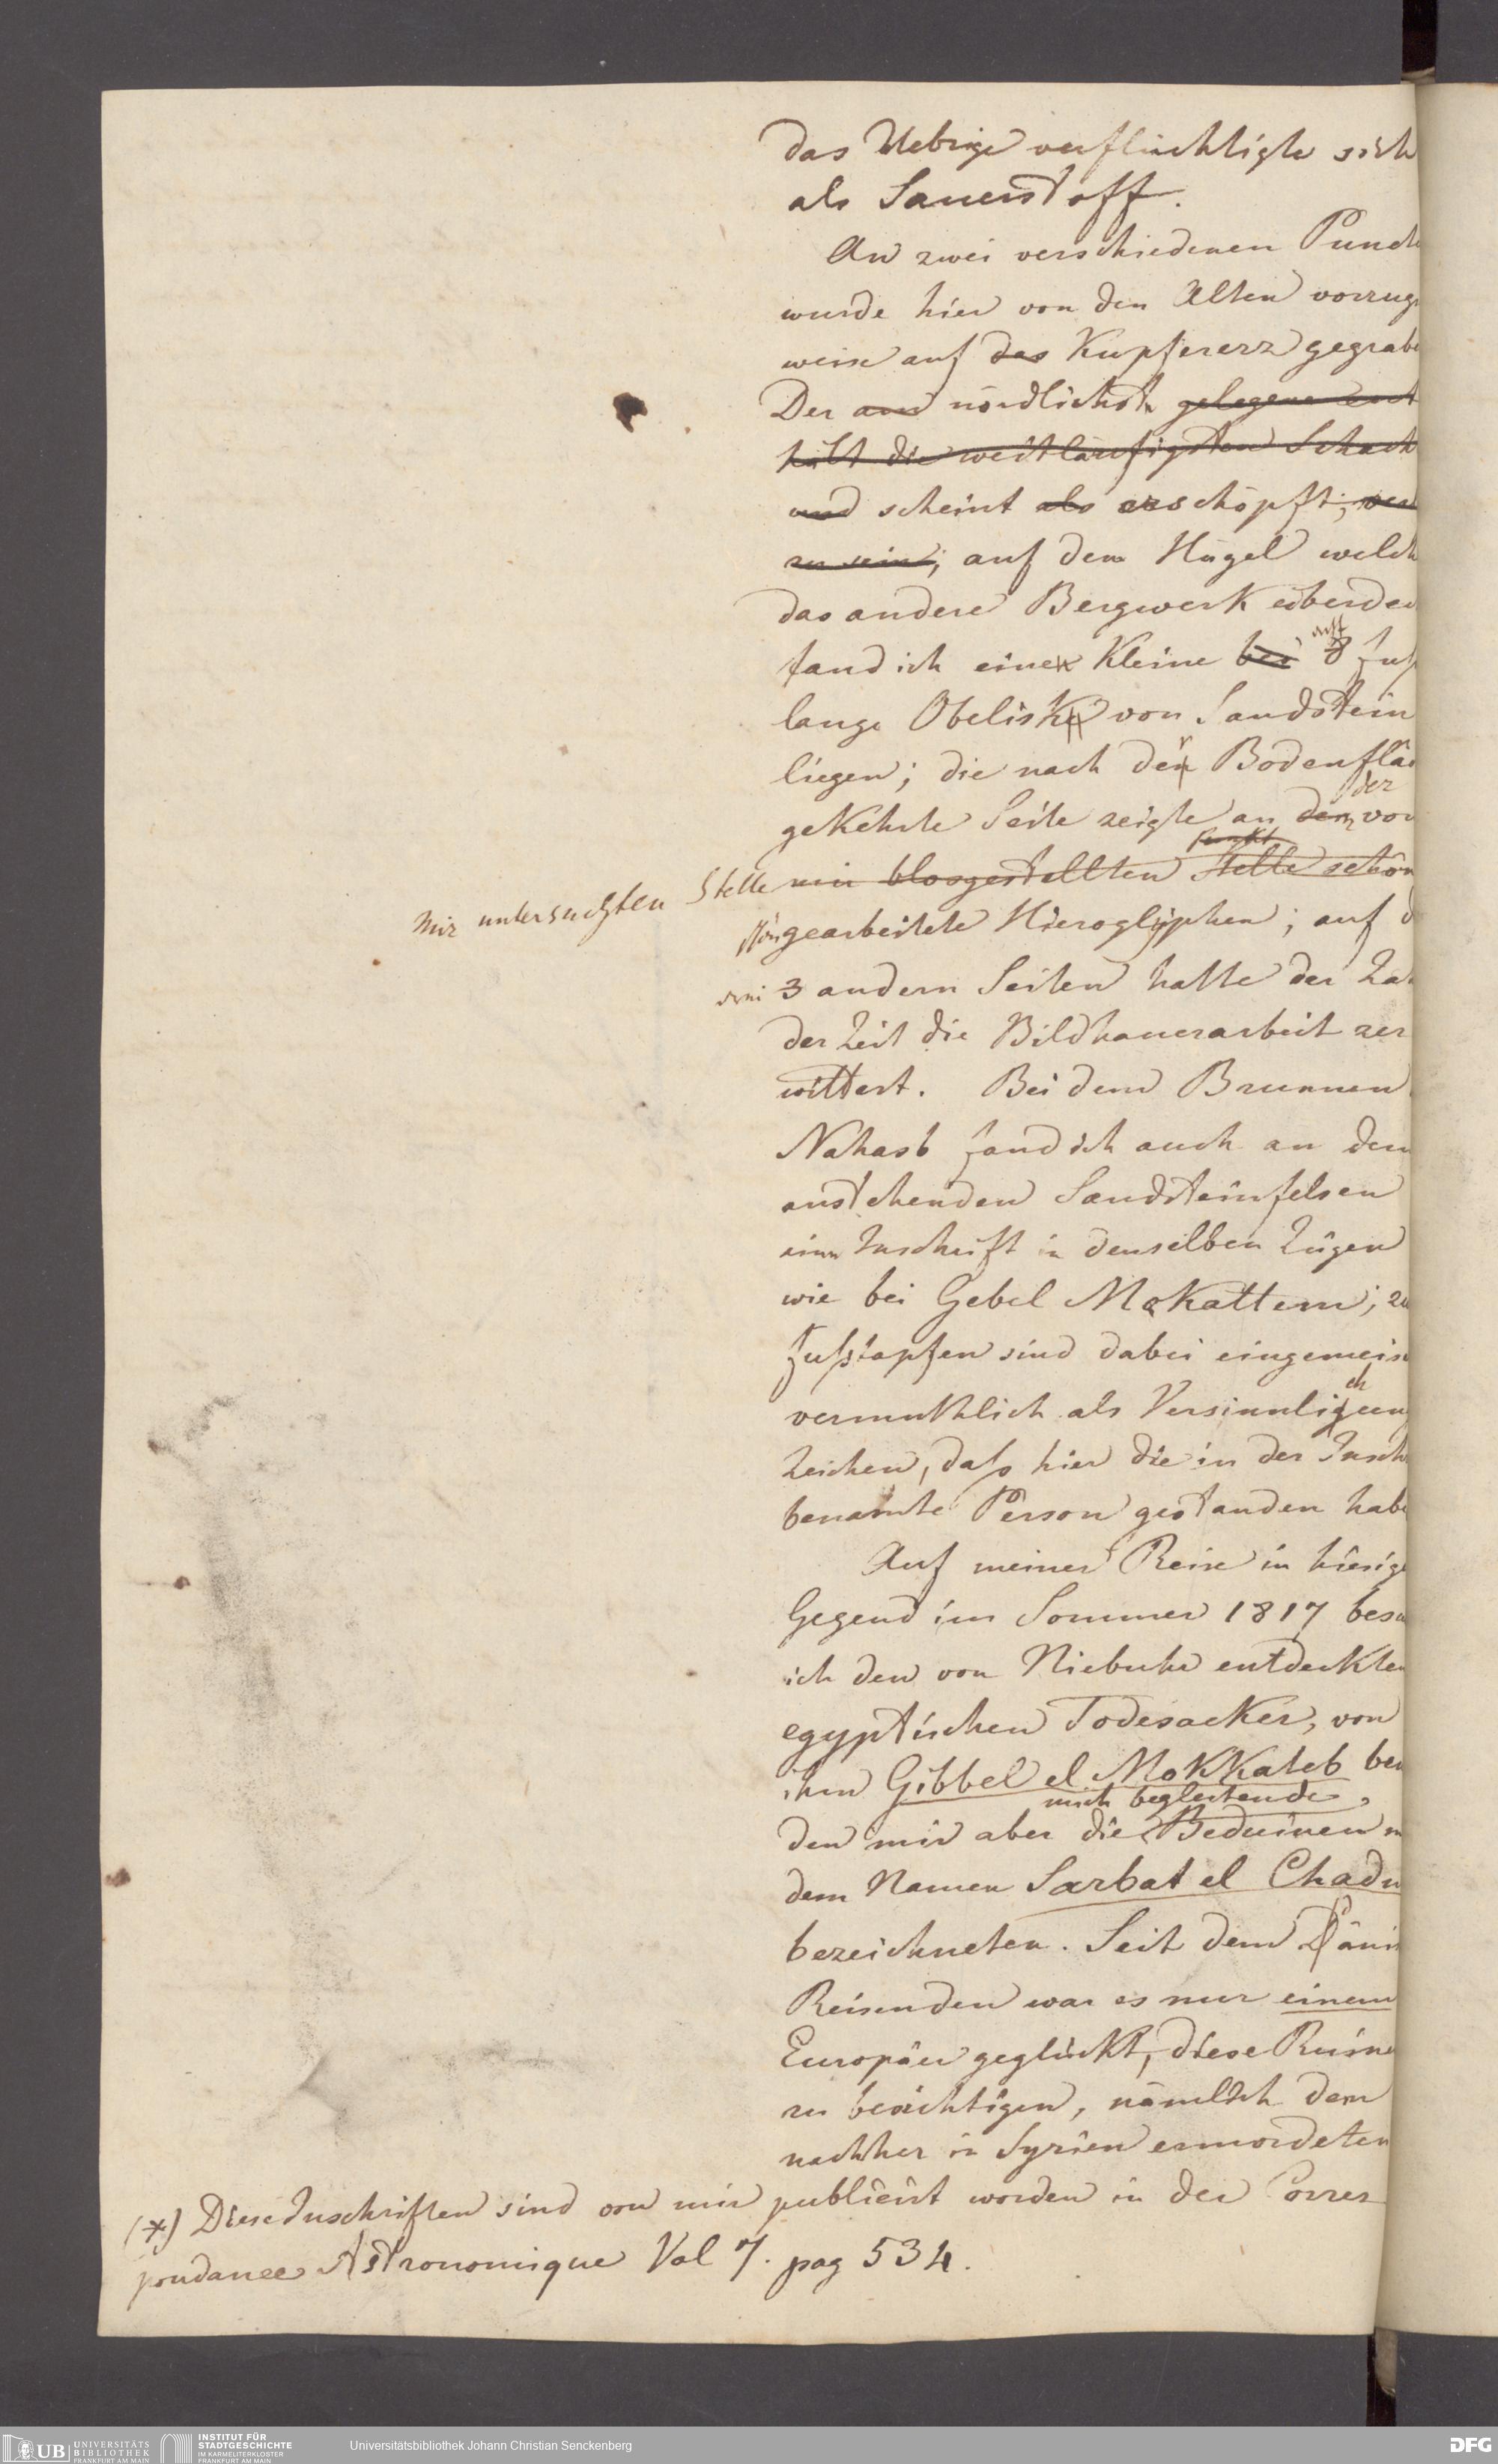 das Uebrige verflüchtigte sich
als Sauerstoff.
An zwei verschiedenen Punct
wurde hier von den Alten vorzugs
weise auf das Kupfererz gegrabe
Der am nördlichste gelegene ent
hält die weitläufigsten Schach
und scheint als erschöpft;
zu sein; auf dem Hügel welch
das andere Bergwerk überdec
fand ich eine kleine bei 8 Fuß
lange Obeliske von Sandstein
liegen; die nach der Bodenfläc
der
gekehrte Seite zeigte an dem von
mir untersuchten Stelle mir blosgestellten Stelle schön
schön gearbeitete Hieroglÿphen; auf d
drei 3 andern Seiten hatte der Zah
der Zeit die Bildhauerarbeit zer
wittert. Bei dem Brunnen
Nahasb fand ich auch an dem
anstehenden Sandsteinfelsen
eine Inschrift in denselben Zügen
wie bei Gebel Mokattem; zw
Fußstapfen sind dabei eingemeis
ch
vermuthlich als Versinnligung
Zeichen, daß hier die in der Insch
benamte Person gestanden habe
Auf meiner Reise in hiesige
Gegend im Sommer 1817 besu
ich den von Niebuhr entdeckten
egyptischen Todesacker, von
ihm Gibbel el Mokkateb ben
mich begleitende
den mir aber die Beduinen m
dem Namen Sarbat el Chadu
bezeichneten. Seit dem Däni
Reisenden war es nur einem
Europäer geglückt, diese Ruine
zu besichtigen, nämlich dem
nachher in Syrien ermordeten
(*) Diese Inschriften sind von mir publicirt worden in der Corres
pondance Astronomique Vol 7. pag 534.
UB UNIVERSITÄTS
BIBLIOTHEK
FRANKFURT AM MAIN
INSTITUT FÜR
STADTGESCHICHTE
IM KARMELITERKLOSTER
FRANKFURT AM MAIN
Universitätsbibliothek Johann Christian Senckenberg
DFG